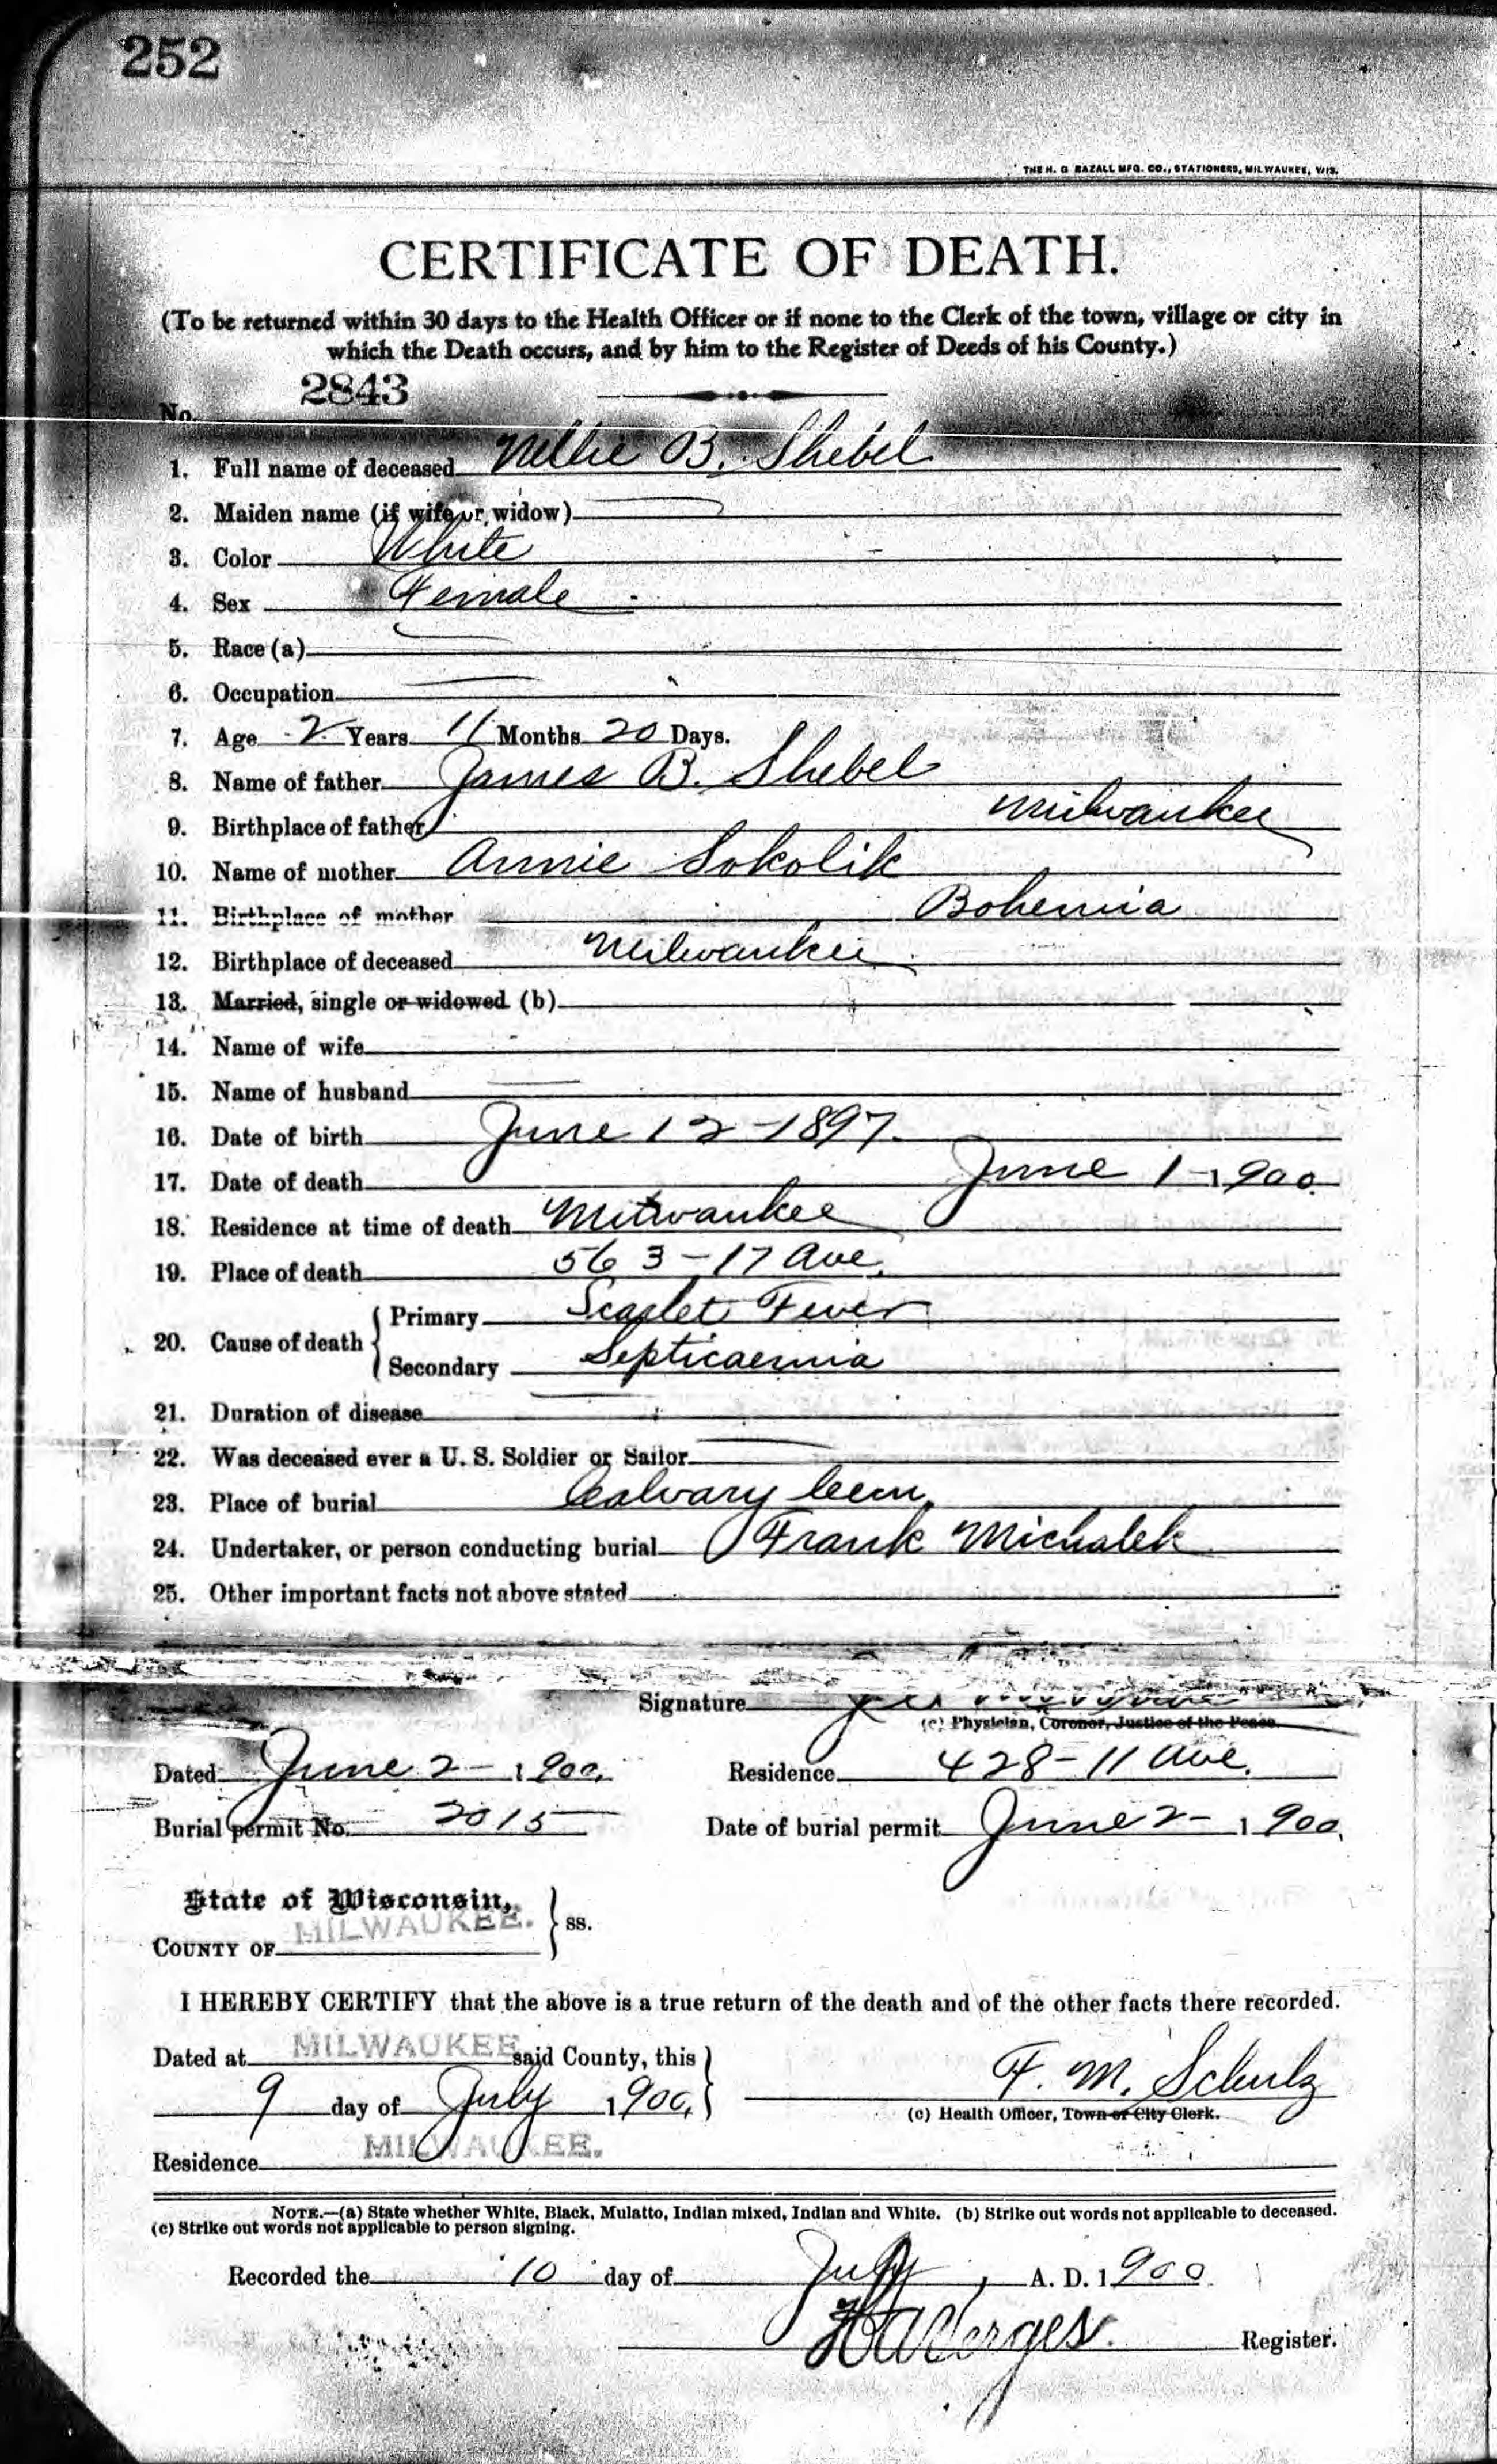 252
THE H. G. RAZALL MFG. CO., STATIONERS, MILWAUKEE, WIS.
CERTIFICATE OF DEATH.
(To be returned within 30 days to the Health Officer or if none to the Clerk of the town, village or city in
which the Death occurs, and by him to the Register of Deeds of his County.)
No. 2843
1. Full name of deceased Nellie B. Shebel
2. Maiden name (if wife or widow)
3. Color White
4. Sex Female
5. Race (a)
6. Occupation
7. Age 2 Years 11 Months 20 Days.
8. Name of father James B. Shebel
9. Birthplace of father Milwaukee
10. Name of mother Annie Sokolik
11. Birthplace of mother Bohemia
12. Birthplace of deceased Milwaukee
13. Married, single or widowed (b)
14. Name of wife
15. Name of husband
16. Date of birth June 12-1897.
17. Date of death June 1-1900
18. Residence at time of death Milwaukee
19. Place of death 563-17 Ave.
20. Cause of death Primary Scarlet Fever
Secondary Septicaemia
21. Duration of disease
22. Was deceased ever a U. S. Soldier or Sailor
23. Place of burial Calvary Cem.
24. Undertaker, or person conducting burial Frank Michalek
25. Other important facts not above stated
Signature
(c) Physician, Coroner, Justice of the Peace.
Dated June 2-1900. Residence 428-11 Ave.
Burial permit No. 2015 Date of burial permit June 2-1900.
State of Wisconsin,
COUNTY OF MILWAUKEE. ss.
I HEREBY CERTIFY that the above is a true return of the death and of the other facts there recorded.
Dated at MILWAUKEE said County, this
9 day of July 1900, F. M. Schulz
(c) Health Officer, Town or City Clerk.
Residence MILWAUKEE.
NOTE.—(a) State whether White, Black, Mulatto, Indian mixed, Indian and White. (b) Strike out words not applicable to deceased.
(c) Strike out words not applicable to person signing.
Recorded the 10 day of July, A. D. 1900
Register.